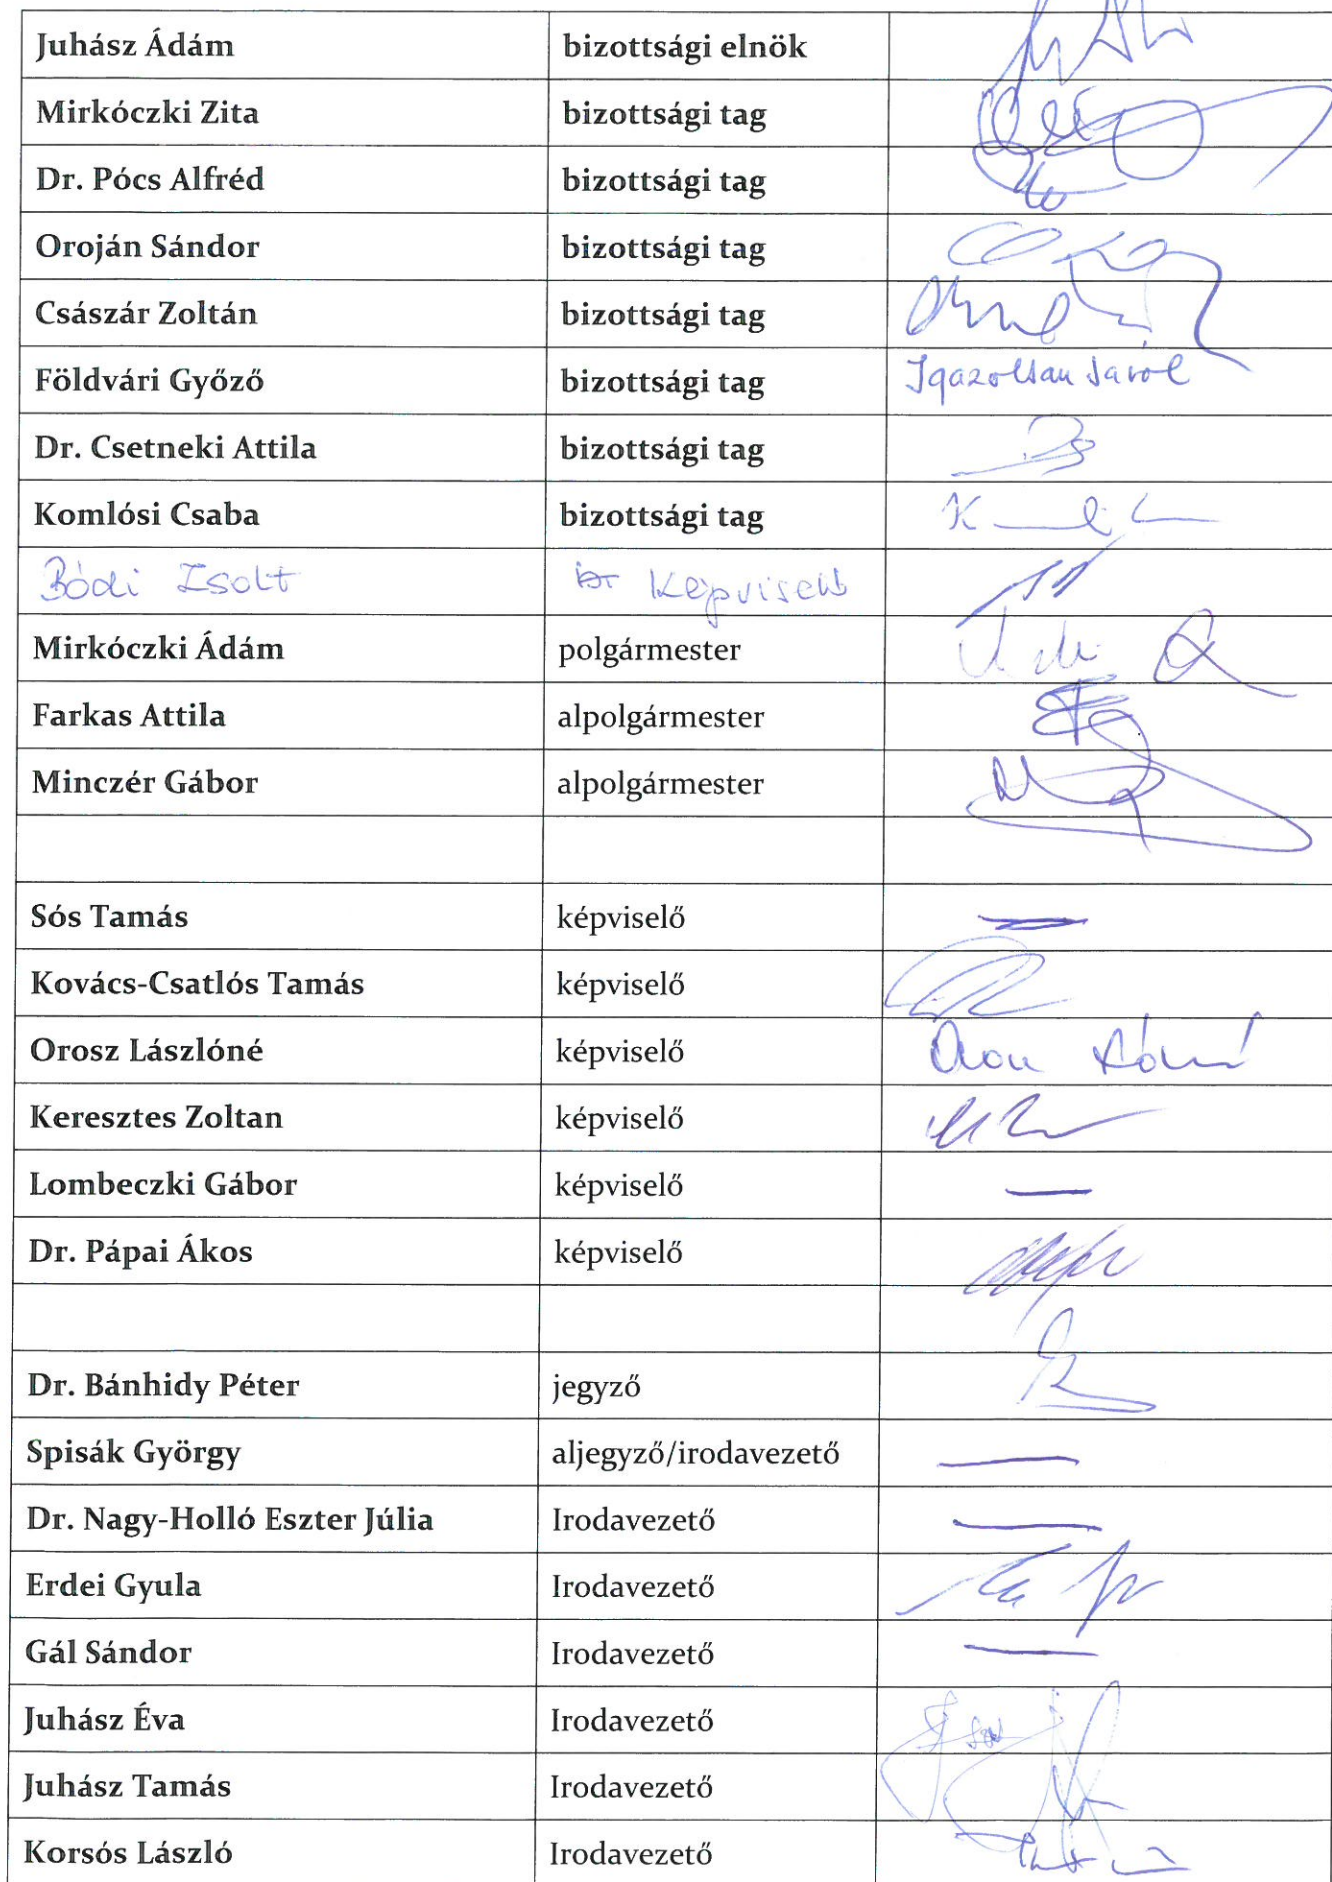 Juhász Ádám bizottsági elnök
Mirkóczki Zita bizottsági tag
Dr. Pócs Alfréd bizottsági tag
Oroján Sándor bizottsági tag
Császár Zoltán bizottsági tag
Földvári Győző bizottsági tag Igazoltan távol
Dr. Csetneki Attila bizottsági tag
Komlósi Csaba bizottsági tag
Bódi Zsolt Képviselő
Mirkóczki Ádám polgármester
Farkas Attila alpolgármester
Minczér Gábor alpolgármester
Sós Tamás képviselő
Kovács-Csatlós Tamás képviselő
Orosz Lászlóné képviselő
Keresztes Zoltan képviselő
Lombeczki Gábor képviselő
Dr. Pápai Ákos képviselő
Dr. Bánhidy Péter jegyző
Spisák György aljegyző/irodavezető
Dr. Nagy-Holló Eszter Júlia Irodavezető
Erdei Gyula Irodavezető
Gál Sándor Irodavezető
Juhász Éva Irodavezető
Juhász Tamás Irodavezető
Korsós László Irodavezető